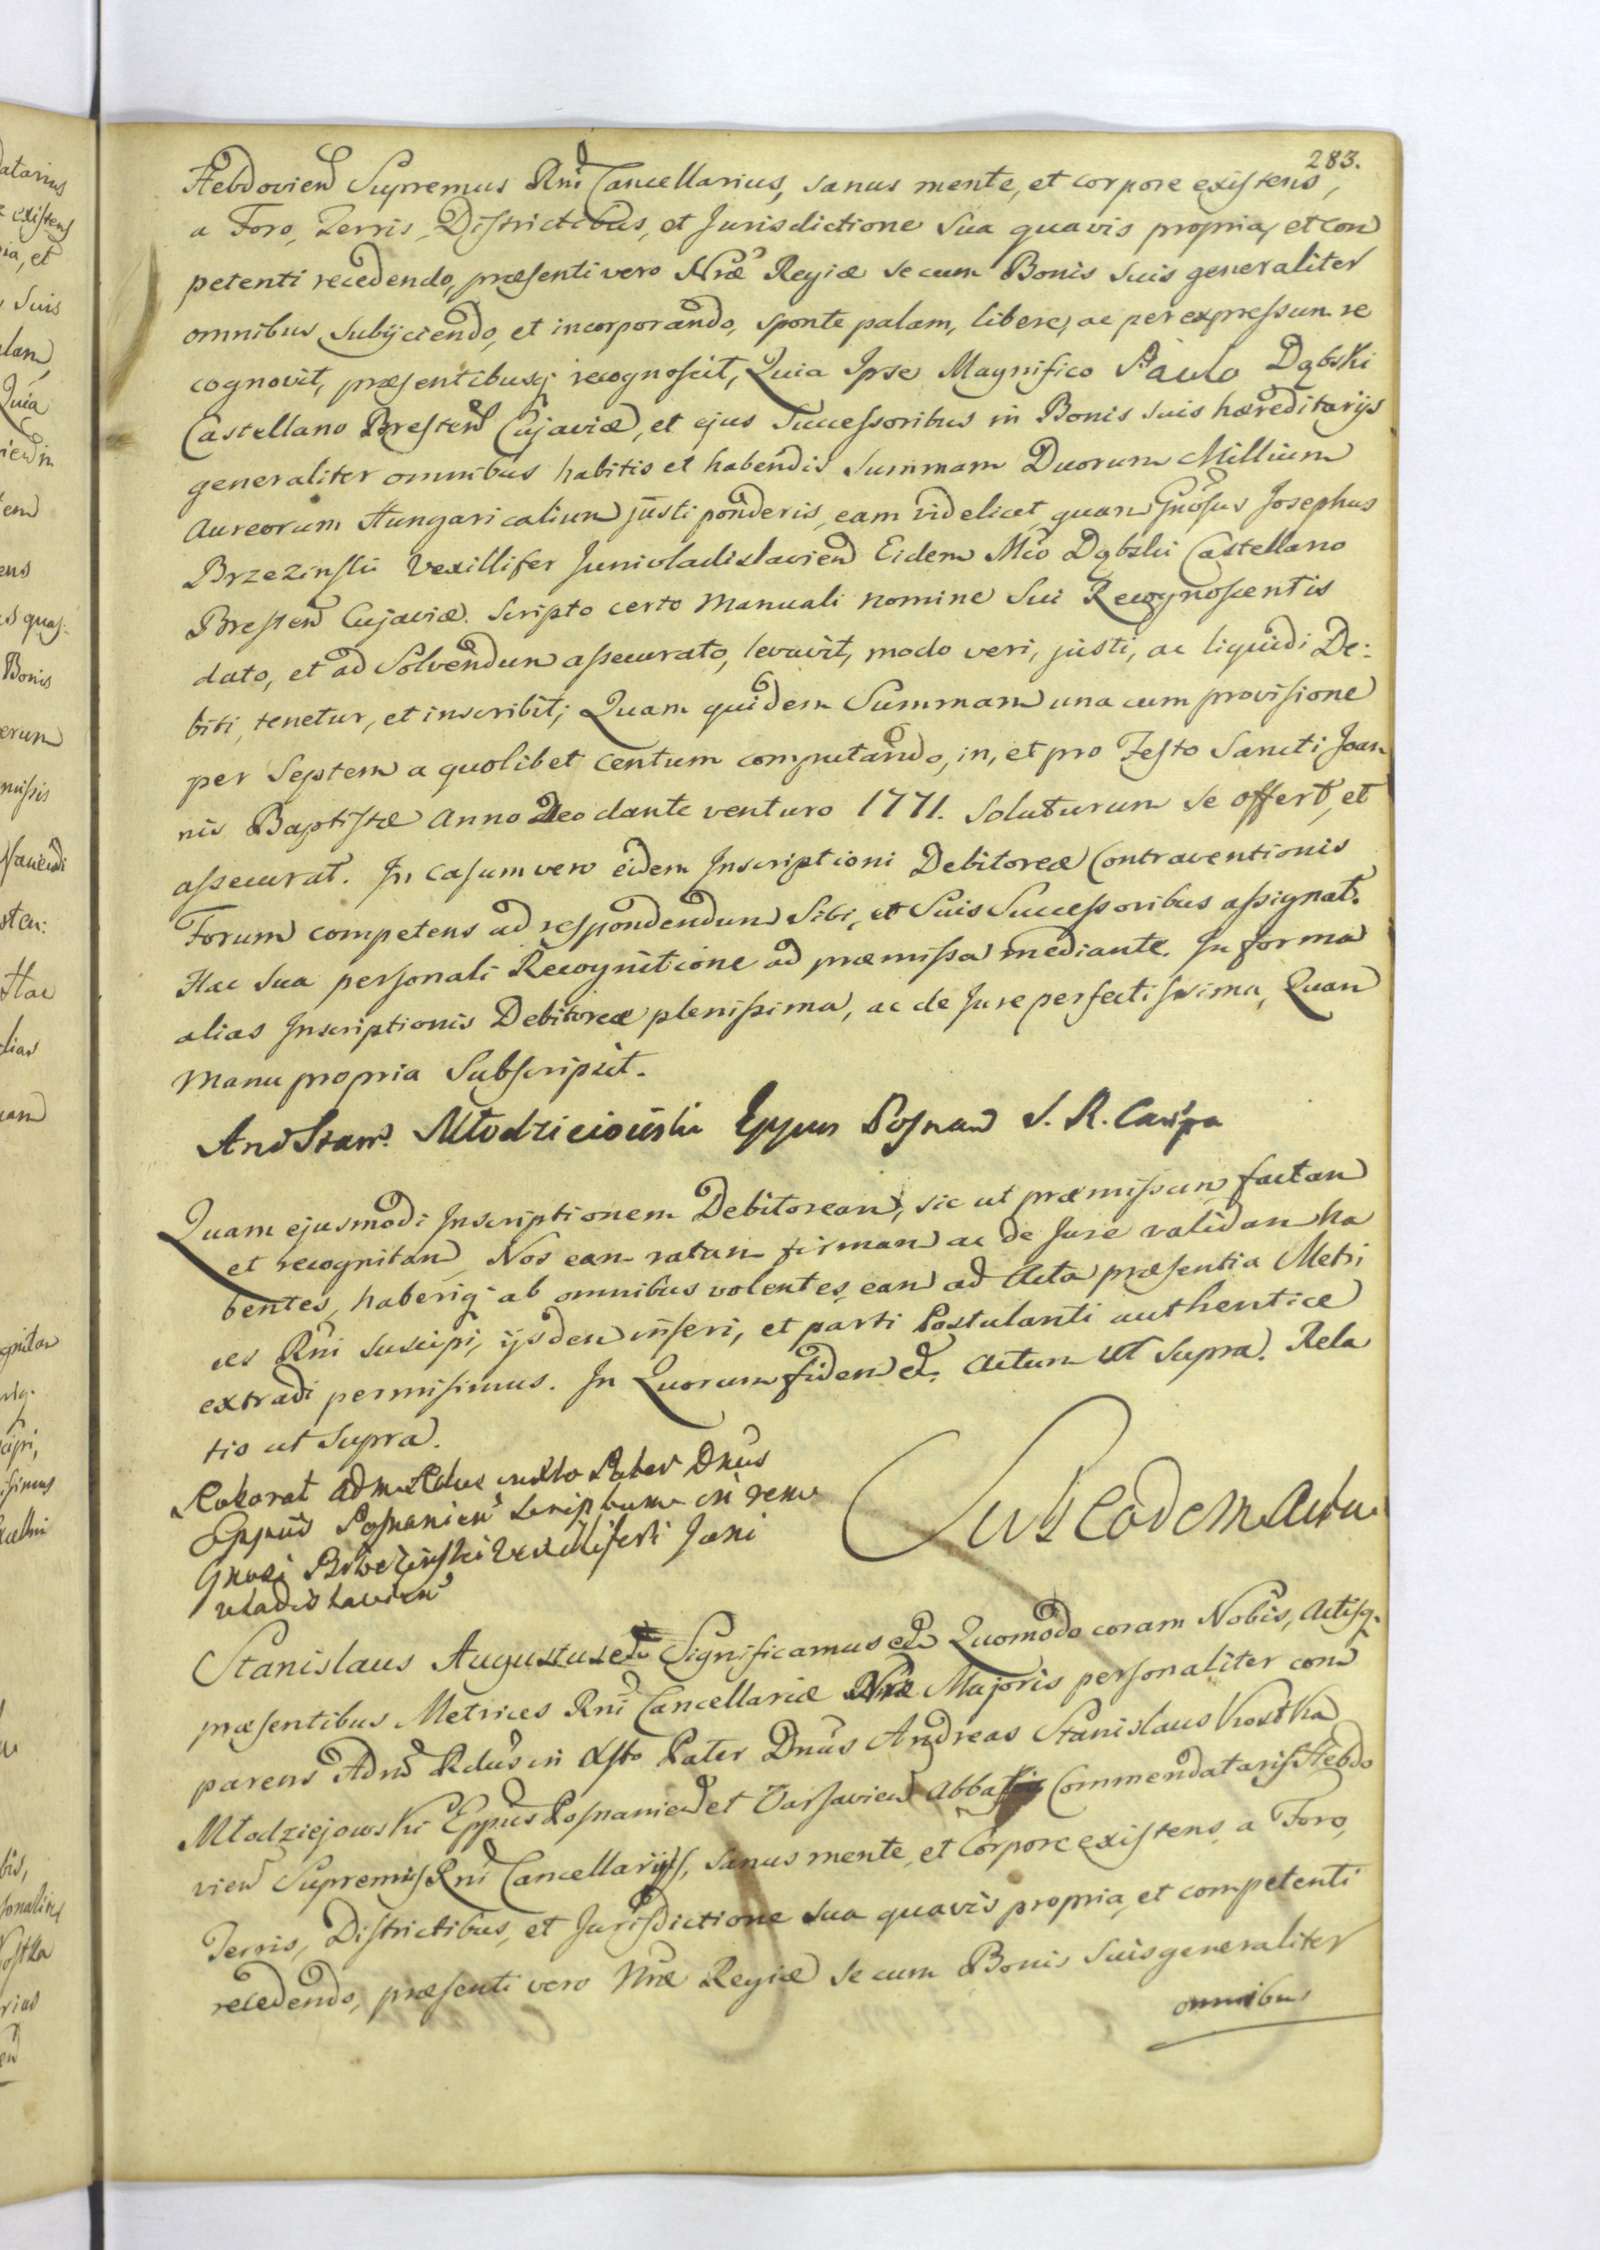 283.
Hebdovien Supremus Rni Cancellarius, sanus mente, et corpore existens,
a Foro, Terris, Districtibus, et Jurisdictione sua quavis propria, et com
petenti recedendo, præsenti vero Nræ Regiæ se cum Bonis suis generaliter
omnibus subijciendo, et incorporando, sponte palam, libere, ac per expressum re
cognovit, præsentibusq recognoscit, Quia Ipse Magnifico Paulo Dąbski
Castellano Bresten Cujaviæ, et ejus Successoribus in Bonis suis hæreditarijs
generaliter omnibus habitis et habendis Summam Duorum Millium
Aureorum Hungaricalium justi ponderis, eam videlicet, quam Gnosus Josephus
Brzezinski Vexillifer Junivladislavien Eidem Mco Dąbski Castellano
Bresten Cujaviæ. Scripto certo Manuali nomine Sui Recognoscentis
dato, et ad Solvendum assecurato, levavit, modo veri, justi, ac liquidi De:
biti, tenetur, et inscribit; Quam quidem Summam una cum provisione
per Septem a quolibet Centum computando, in, et pro Festo Sancti Joan
nis Baptistæ Anno Deo dante venturo 1771. soluturum se offert, et
assecurat. In casum vero eidem Inscriptioni Debitoreæ Contraventionis
Forum competens ad respondendum Sibi, et Suis Successoribus assignat.
Hac Sua personali Recognitione ad præmissa mediante. In forma
alias Inscriptionis Debitoreæ plenissima, ac de Jure perfectissima, Quam
Manu propria Subscripsit.
And Stan. Młodzieiowski Eppus Posnan S. R. Canc
Quam ejusmodi Inscriptionem Debitoream, sic ut præmissum factam
et recognitam, Nos eam ratam firmam ac de Jure validam ha
bentes, haberiq ab omnibus volentes, eam ad Acta præsentia Metri
ces Rni suscipi, ijsdem inseri, et parti Postulanti authentice
extradi permisimus. In Quorum fidem &. Actum ut Supra. Rela
tio ut Supra.
Roborat Adm Rdus in Xto Pater Dnus
Eppus Posnanien Scriptum in rem
Gnosi Brzezinski Vexilliferi Juni
vladislavien
Sub eodem Actu
Stanislaus Augustus &c Significamus &c Quomodo coram Nobis, Actisq.
præsentibus Metrices Rni Cancellariæ Nræ Majoris personaliter com
parens Adm Rdus in Xsto Pater Dnus Andreas Stanislaus Kostka
Młodziejowski Eppus Posnanien et Varsavien Abbas Commendatarius Hebdo
vien Supremus Rni Cancellarius, sanus mente, et Corpore existens, a Foro,
Terris, Districtibus, et Jurisdictione sua quavis propria, et competenti
recedendo, præsenti vero Nræ Regiæ se cum Bonis suis generaliter
omnibus